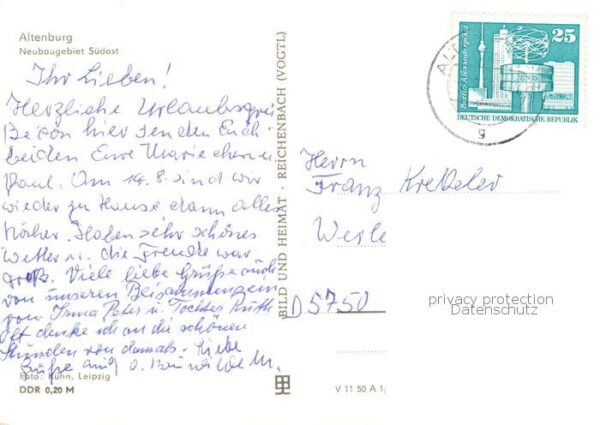 Altenburg
Neubaugebiet Südost
Ihr Lieben!
Herzliche Urlaubsgrü
ße von hier senden Euch
beiden Eure Mariechen u.
Paul. Am 14.8. sind wir
wieder zu Hause dann alles
Näher. Haben sehr schönes
Wetter u. die Freude war
groß. Viele liebe Grüße auch
von unseren Beisammensein
von Irma Peter u. Tochter Ruth
oft denke ich an die schönen
Stunden von damals. Liebe
Grüße auch v.
Foto: Kühn, Leipzig
DDR 0,20 M
BILD UND HEIMAT · REICHENBACH (VOGTL)
V 11 50 A 1/
25
Berlin, Alexanderplatz
DEUTSCHE DEMOKRATISCHE REPUBLIK
ALT
g
Herrn
Franz
Werle
D 5750
privacy protection
Datenschutz